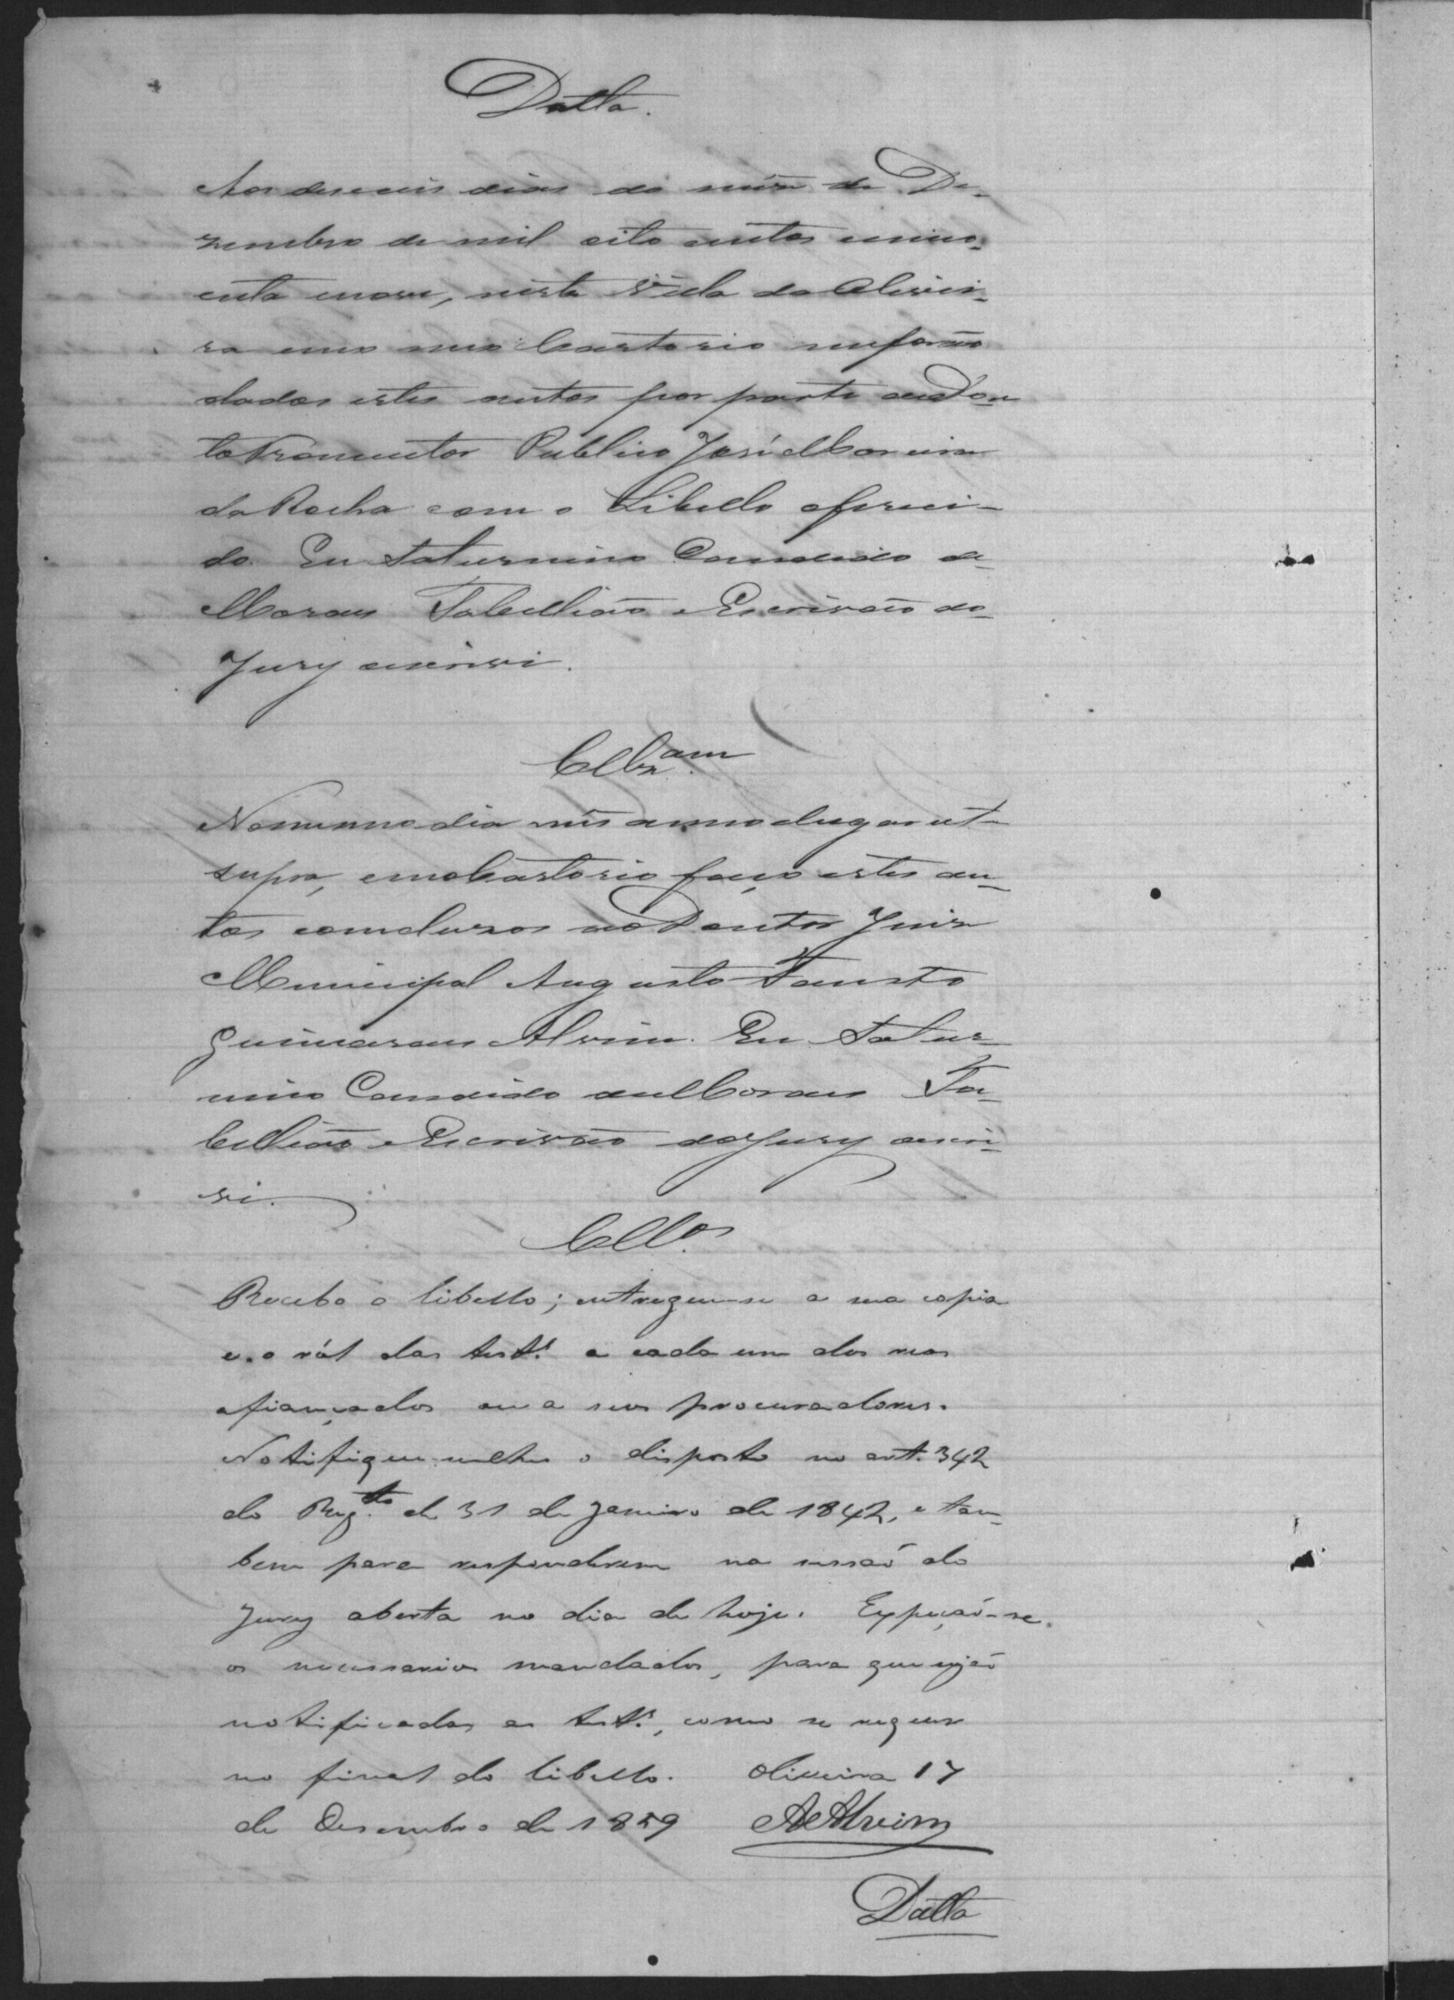 Datta.
Aos deseceis dias do mês de De-
zembro de mil oito centos cinco-
enta enove, nesta Villa da Olivei-
ra em meo Cartorio me forão
dados estes autos por parte do Dou
tor Promotor Publico José Moreira
da Rocha com o Libello ofereci-
do. Eu Saturnino Candido de
Moraes Tabellião e Escrivão do
Jury escrevi.
Cllz.am
Nomesmo dia mês anno e lugar ut
supra, emo Cartorio faço estes au-
tos concluzos ao Doutor Juiz
Municipal Augusto Fausto
Guimaraes Alvim. Eu Satur-
nino Candido de Moraes Ta-
bellião e Escrivão do Jury escre-
vi.
Cll.os
Recebo o libello; entregue-se a sua copia
e o ról das test.s a cada um dos reos
afiançados ou a seus procuradores.
Notifique-se-lhes o disposto no art. 342
do Reg.to de 31 de Janeiro de 1842, e tam-
bem para responderem na sessaõ do
Jury aberta no dia de hoje. Expeçaõ-se
os necessarios mandados, para que sejaõ
notificadas as test.s, como se requer
no final do libello. Oliveira 17
de Desembro de 1859 AAlvim
Datta